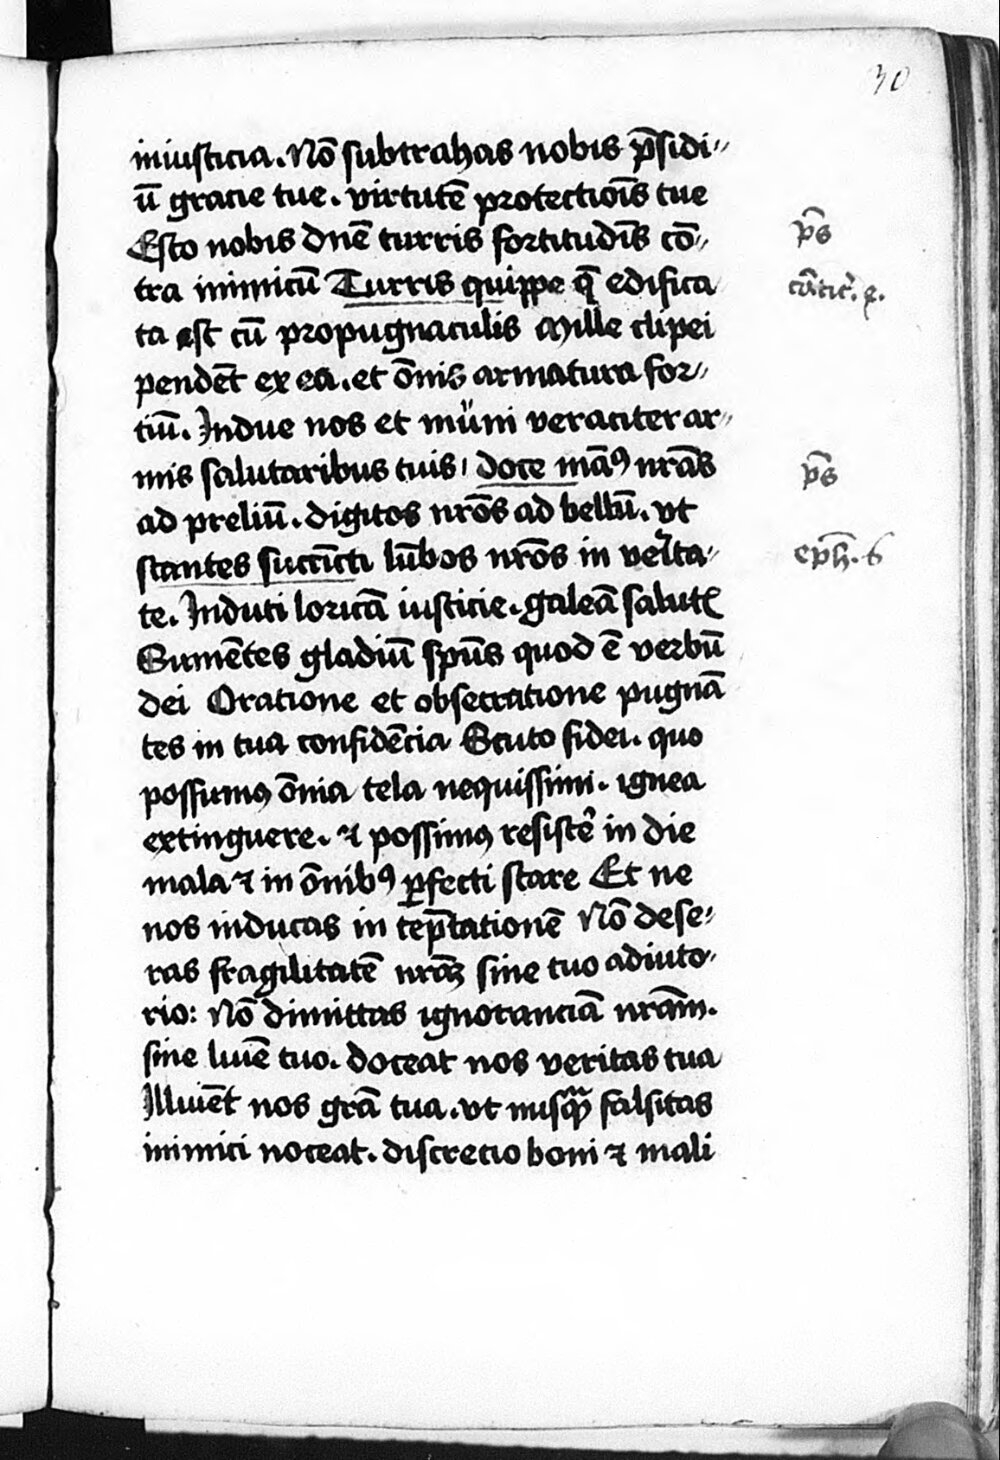 30
iniusticia. Nō subtrahas nobis p̄sidi〃
ū gracie tue. virtutē protectiōis tue
Esto nobis dn̄e turris fortitudīs cō〃
p̄s
tra inimicū Turris quippe q̄ edifica
ta est cū propugnaculis Mille clipei
pendēt ex ea. et ōnis armatura for〃
tiū. Indue nos et muni veraciter ar〃
mis salutaribus tuis. doce manꝰ nr̄as
p̄s
ad preliū. digitos nr̄os ad bellū. vt
stantes succīcti lūbos nr̄os in verita〃
eph. 6
te. Induti loricā iusticie. galeā salutꝭ
Sumētes gladiū sp̄us quod ē verbū
dei Oratione et obsecratione pugnā
tes in tua confidēcia Scuto fidei. quo
possumꝰ ōnia tela nequissimi. ignea
extinguere. ⁊ possimꝰ resistēr in die
mala ⁊ in ōnibꝰ ꝑfecti stare Et ne
nos inducas in tep̄tationē Nō dese〃
ras fragilitatē nr̄aꝫ sine tuo adiuto〃
rio: Nō dimittas ignoranciā nr̄am.
sine luīe tuo. doceat nos veritas tua
Illuīet nos gr̄a tua. vt nusqꝫ falsitas
inimici noceat. discrecio boni ⁊ mali